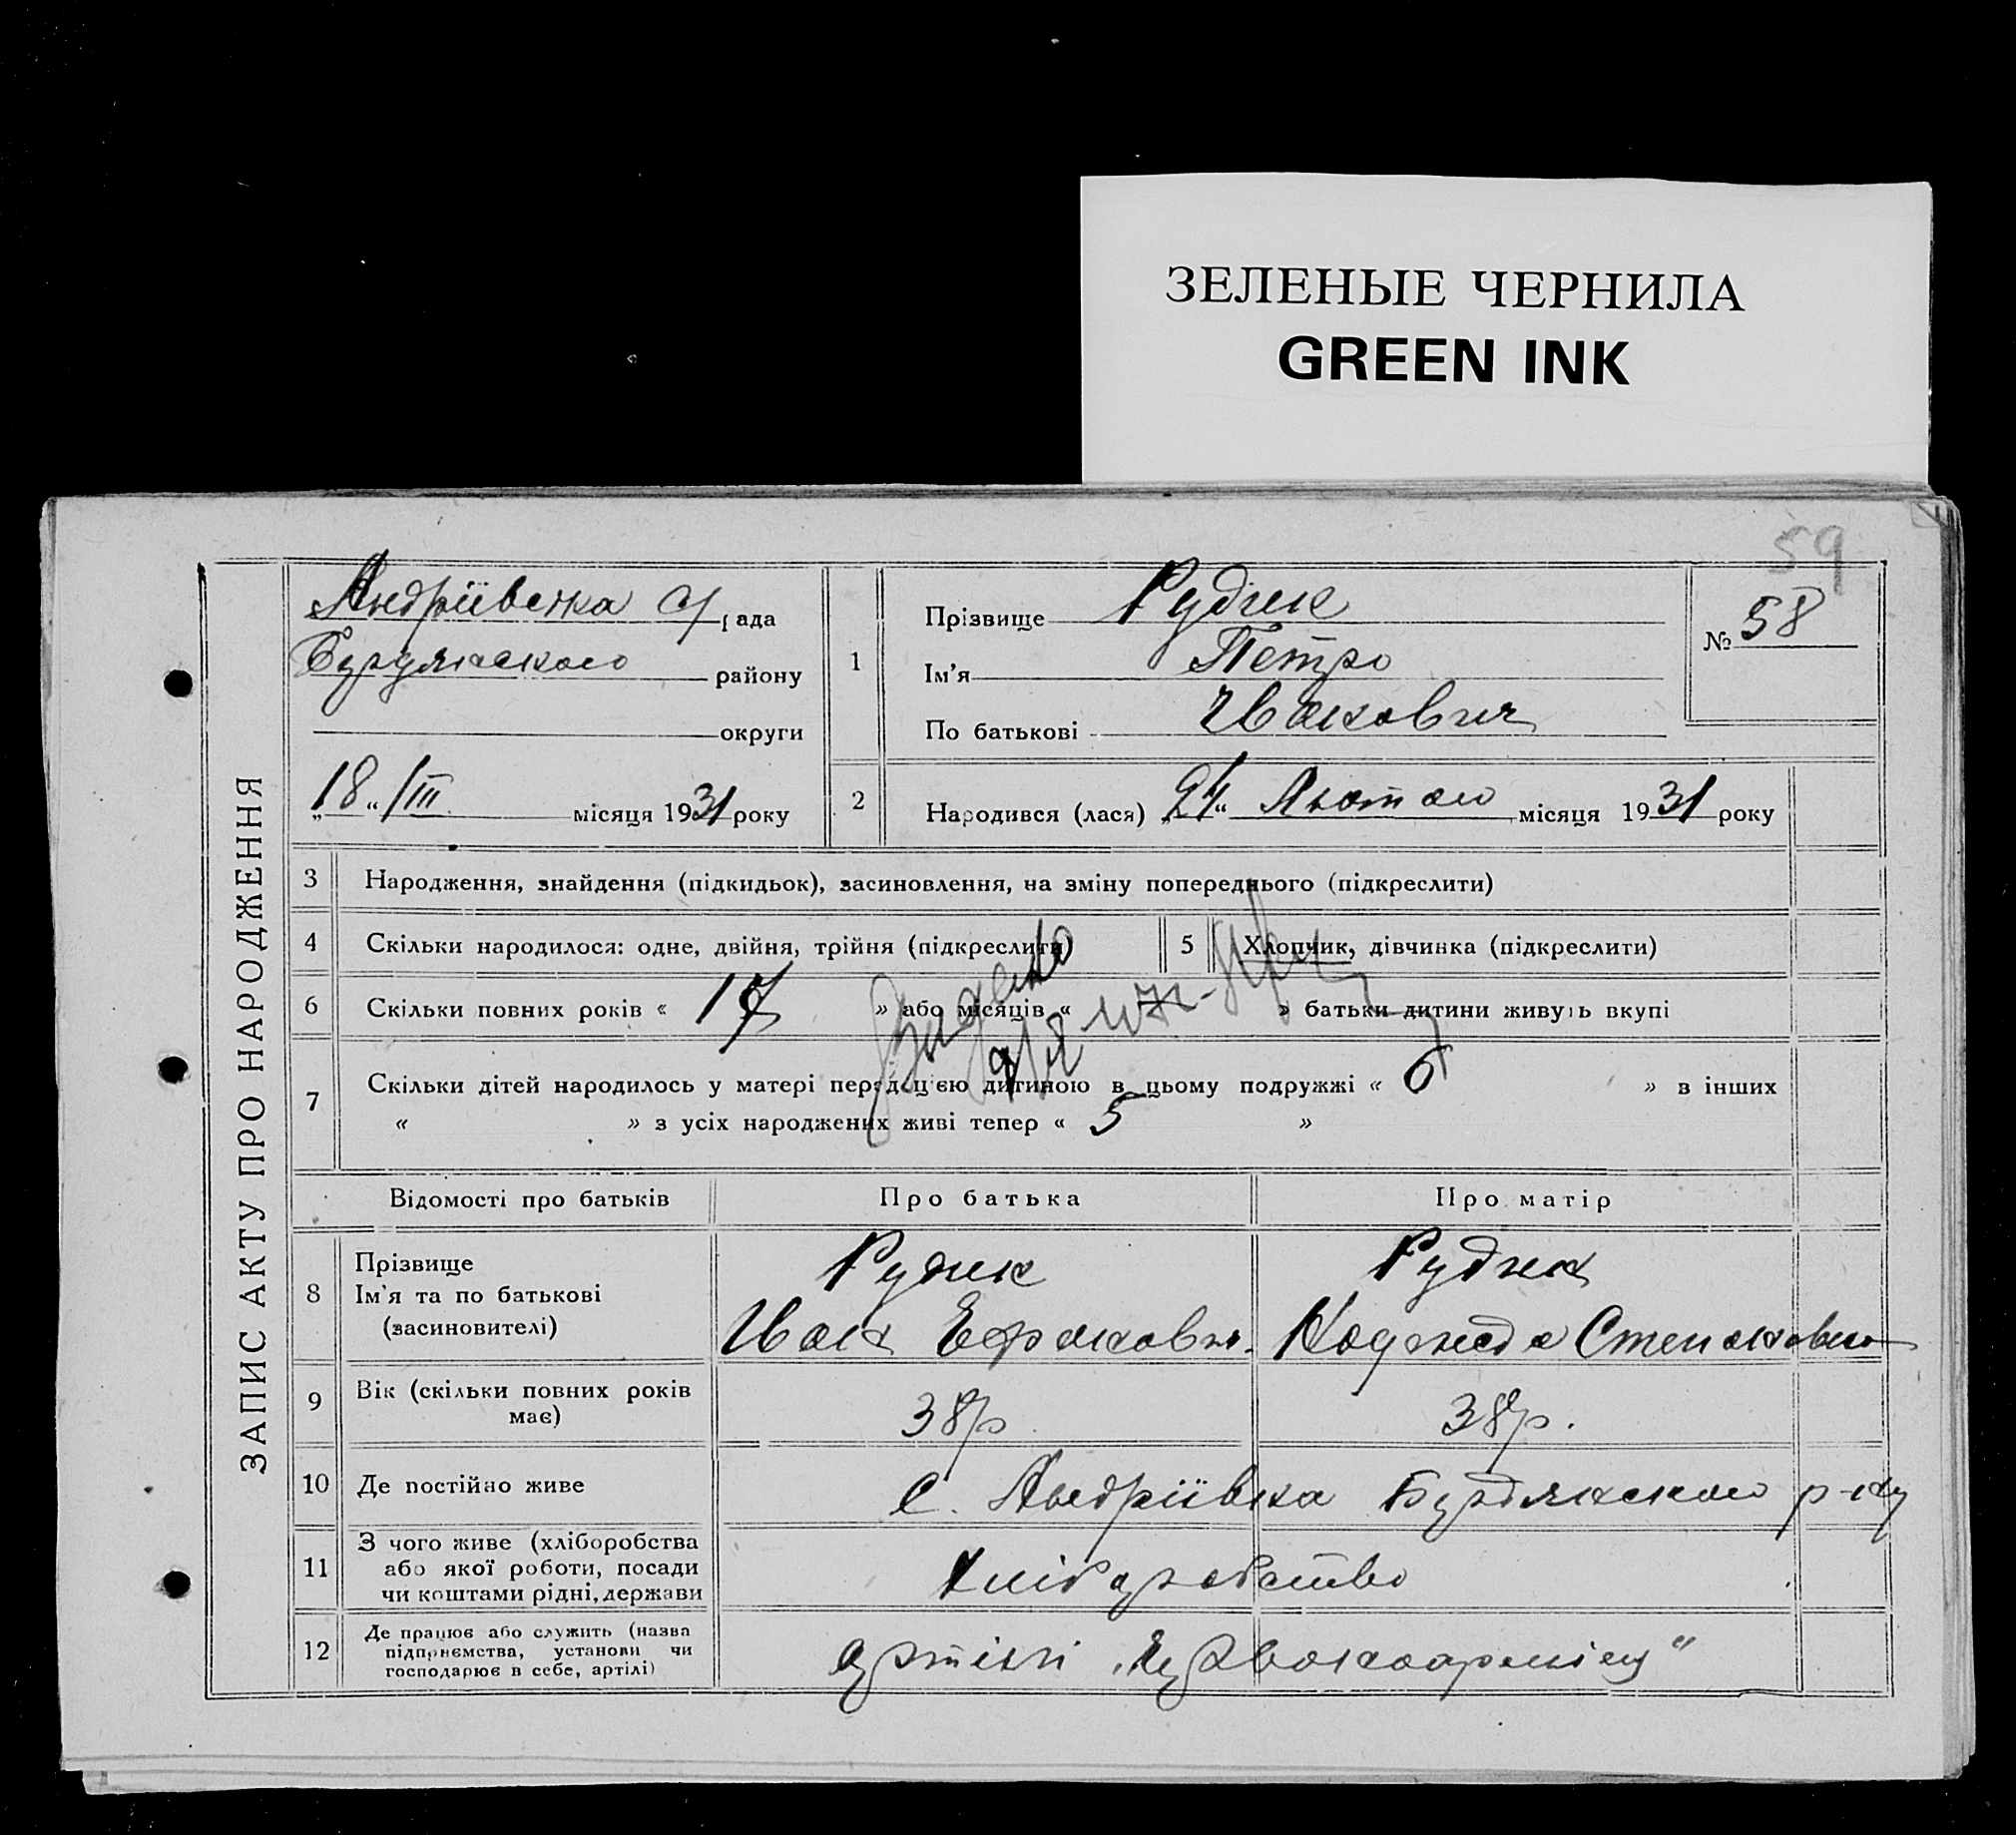 ЗЕЛЕНЫЕ ЧЕРНИЛА
GREEN INK
59
ЗАПИС АКТУ ПРО НАРОДЖЕННЯ
Андріївська с/рада
району
округи
„18“ /III місяця 1931 року
№ 58
1 Прізвище Рудик
Ім'я Петро
По батькові Іванович
2 Народився (лася) „24“ Лютого місяця 1931 року
3 Народження, знайдення (підкидьок), засиновлення, на зміну попереднього (підкреслити)
4 Скільки народилося: одне, двійня, трійня (підкреслити)
5 Хлопчик, дівчинка (підкреслити)
6 Скільки повних років « 17 » або місяців « » батьки дитини живуть вкупі
7 Скільки дітей народилось у матері перед цією дитиною в цьому подружжі « 6 » в інших
« » з усіх народжених живі тепер « 5 »
Відомості про батьків Про батька Про матір
8 Прізвище Рудик Рудик
Ім'я та по батькові Иван Надежда Степановна
(засновителі)
9 Вік (скільки повних років має) 38р 38р.
10 Де постійно живе с. Андріївка р-ну
11 З чого живе (хліборобства
або якої роботи, посади
чи коштами рідні, держави
хліборобство
12 Де працює або служить (назва
підприємства, установи чи
господарює в себе, артілі)
артілі „Червоноармієц“